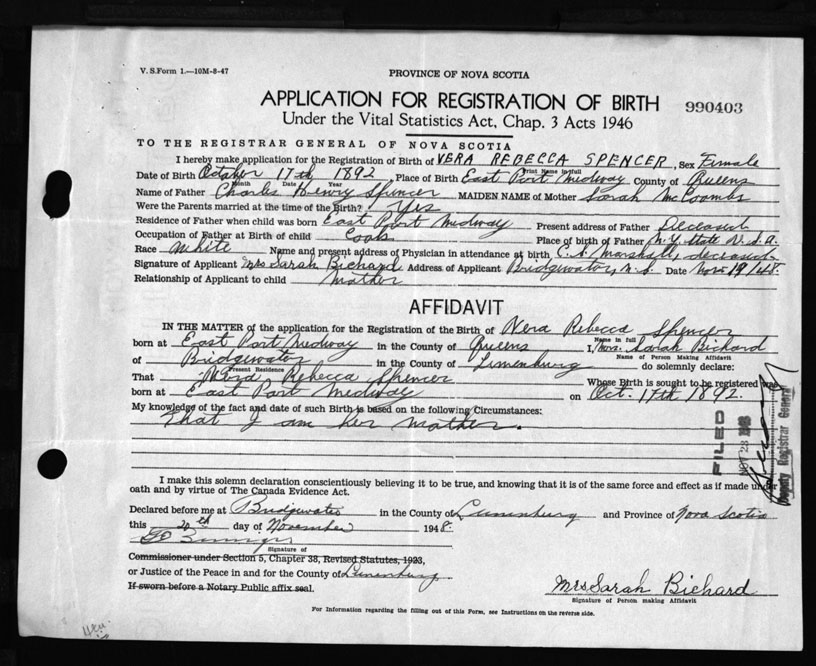 V. S. Form 1.—10M-8-47
PROVINCE OF NOVA SCOTIA
APPLICATION FOR REGISTRATION OF BIRTH
990403
Under the Vital Statistics Act, Chap. 3 Acts 1946
TO THE REGISTRAR GENERAL OF NOVA SCOTIA
I hereby make application for the Registration of Birth of VERA REBECCA SPENCER, Sex Female
Print Name in full
Date of Birth October 17th 1892, Place of Birth East Port Medway County of Queens
Month Date Year
Name of Father Charles Henry Spencer MAIDEN NAME of Mother Sarah McCoombs
Were the Parents married at the time of the Birth? Yes
Residence of Father when child was born East Port Medway Present address of Father Deceased
Occupation of Father at Birth of child Cook Place of Birth of Father N.Y. State U.S.A.
Race White Name and present address of Physician in attendance at birth Marshall, deceased
Signature of Applicant Mrs Sarah Bichard Address of Applicant Bridgewater, N.S. Date Nov. 19/48.
Relationship of Applicant to child Mother
AFFIDAVIT
IN THE MATTER of the application for the Registration of the Birth of Vera Rebecca Spencer
Name in full
born at East Port Medway in the County of Queens I, Mrs. Sarah Bichard
Name of Person Making Affidavit
of Bridgewater in the County of Lunenburg do solemnly declare:
Present Residence
That Vera Rebecca Spencer Whose Birth is sought to be registered was
born at East Port Medway on Oct. 17th 1892.
My knowledge of the fact and date of such Birth is based on the following Circumstances:
That I am her mother.
FILED
NOV 23
Deputy Registrar General
I make this solemn declaration conscientiously believing it to be true, and knowing that it is of the same force and effect as if made under
oath and by virtue of The Canada Evidence Act.
Declared before me at Bridgewater in the County of Lunenburg and Province of Nova Scotia
this 20th day of November 1948.
Signature of
Commissioner under Section 5, Chapter 38, Revised Statutes, 1923,
or Justice of the Peace in and for the County of Lunenburg.
If sworn before a Notary Public affix seal.
Mrs Sarah Bichard
Signature of Person making Affidavit
For Information regarding the filling out of this Form, see Instructions on the reverse side.